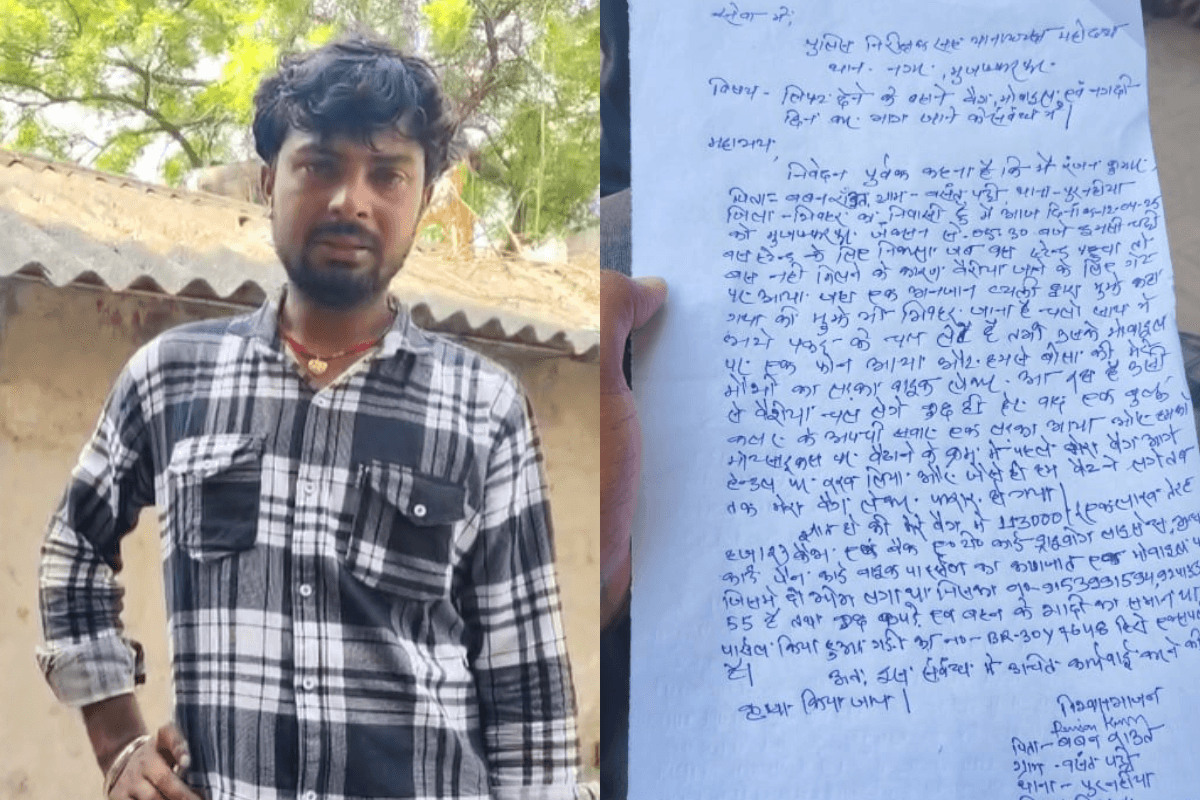 सेवा में,
पुलिस निरीक्षक सह थानाध्यक्ष महोदय
थाना - नगर, मुजफ्फरपुर
विषय - लिफ्ट देने के बहाने बैग, मोबाइल एवं नगदी
छिन कर भाग जाने के संबंध में।
महाशय,
निवेदन पूर्वक कहना है कि मैं रंजन कुमार,
पिता - बबन राउत, ग्राम - बसंत पट्टी, थाना - पुरनहिया
जिला - शिवहर का निवासी हूँ मैं आज दिनांक 12-04-25
को मुजफ्फरपुर जंक्शन से 30 बजे इमली चट्टी
बस स्टैन्ड के लिए निकला जब बस स्टैन्ड पहुचा तो
बस नही मिलने के कारण बैरीया जाने के लिए गेट
पर आया जहा एक अनजान व्यक्ती द्वारा मुझे कहा
गया की मुझे भी शिवहर जाना है चलो साथ में
चल लेते हैं तभी उसके मोबाइल
पर एक फोन आया और हमसे बोला की मेरी
मौसी का लड़का बाइक लेकर आ रहा है उसी
से बैरीया चल लेगे कुछ ही देर बाद एक
कलर के अपाची सवार एक लड़का आया और हमको
मोटरसाइकल पर बैठाने के क्रम में पहले मेरा बैग आगे
हेन्डल पर रख लिया और जैसे ही हम बैठने लगे तब
तक मेरा बैग लेकर फरार हो गया।
ज्ञात हो की मेरे बैग में 113000/ (एक लाख तेरह
हजार) कैश, एवं बैंक एटीएम कार्ड ड्राइवींग लाइसेन्स,
कार्ड पैन कार्ड बाइक पार्सल का कागजात एक मोबाइल
जिसमें दो सीम लगा था जिसका न०-
55 है तथा कुछ कपड़े एवं बहन के शादी का समान था
पार्सल किया हुआ गाड़ी का न०- BR-30Y 7648 हिरो
है।
अतः इस संबंध में उचित कार्यवाई करने की
कृप्या किया जाय।
विश्वासभाजन
Ranjan Kumar
पिता - बबन राउत
ग्राम - बसंत पट्टी
थाना - पुरनहिया